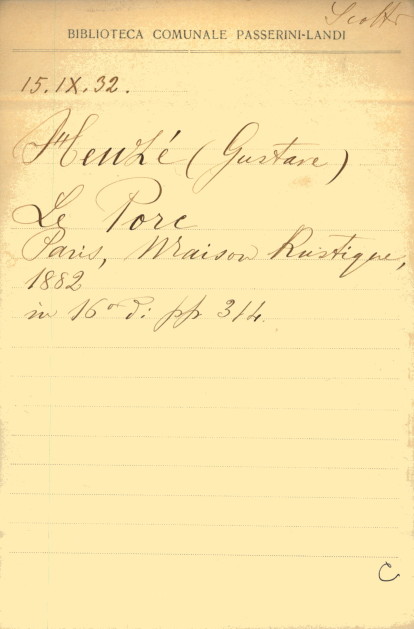 Scotti
BIBLIOTECA COMUNALE PASSERINI-LANDI
15.IX.32.
Heuzé (Gustave)
Le Porc
Paris, Maison Rustique,
1882
in 16° di pp 314.
C